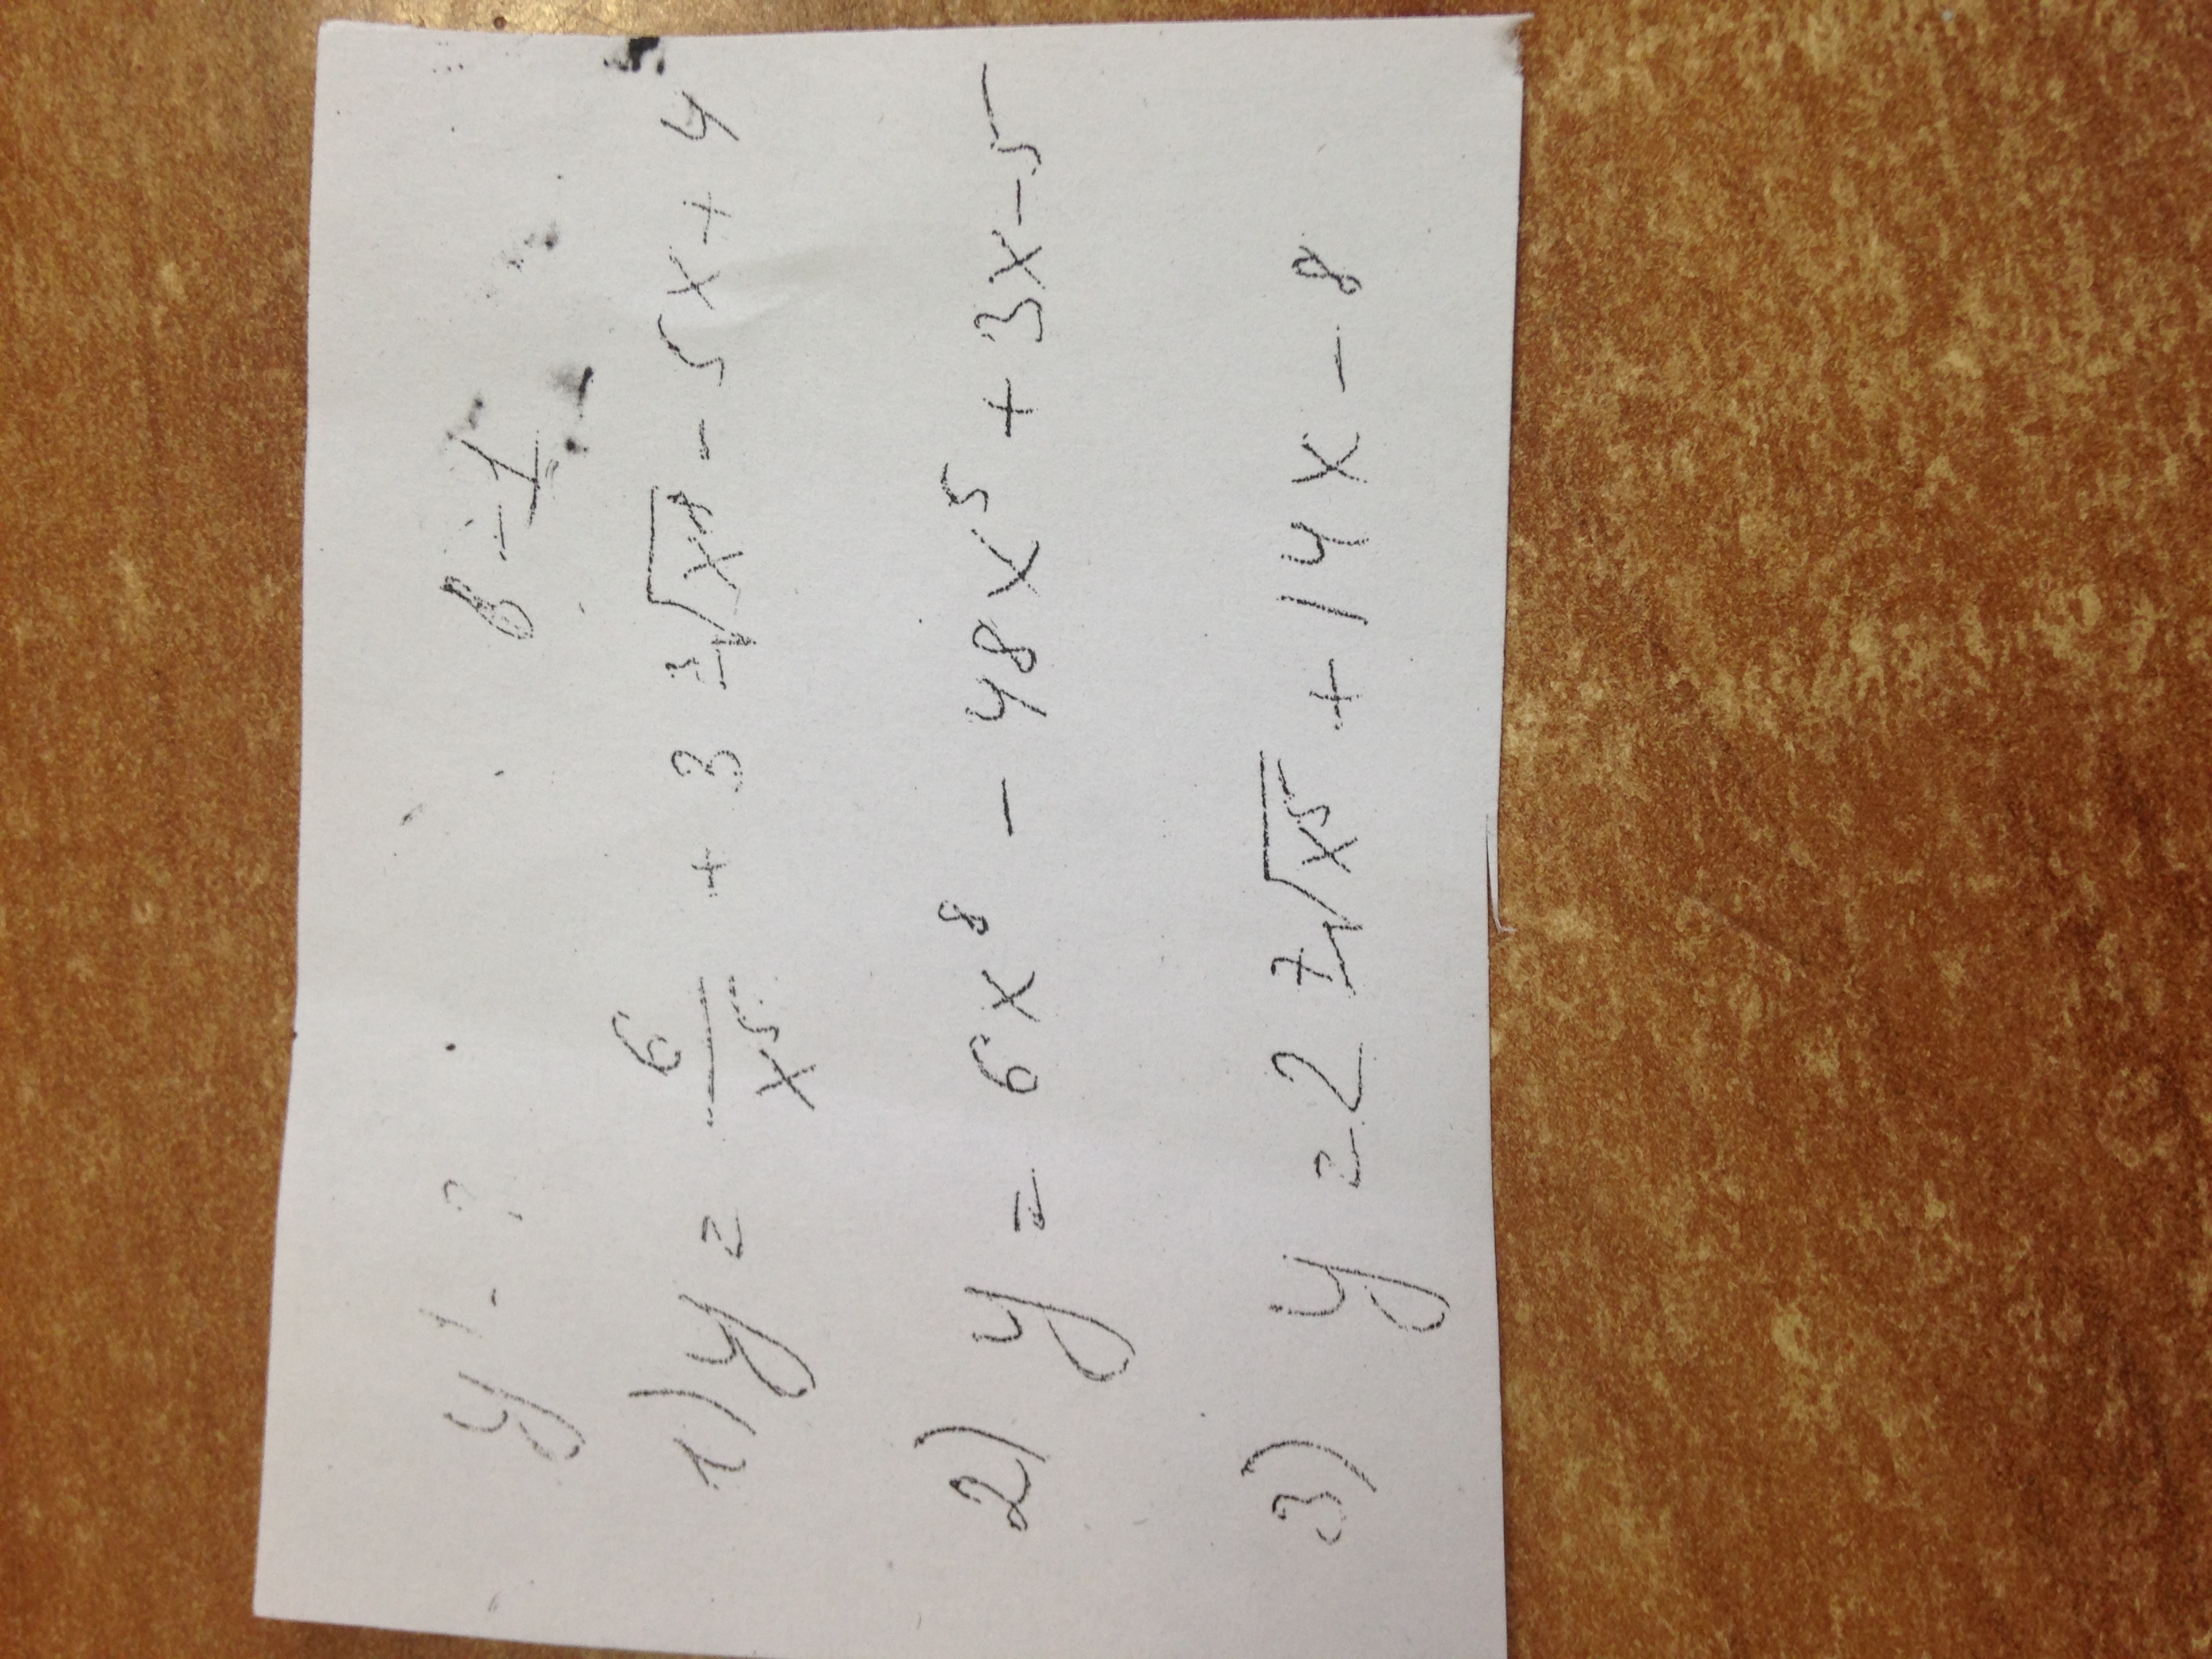 y' - ? В-I
1) y = 6/x⁵ + 3 ⁷√x⁴ - 5x + 4
2) y = 6x⁸ - 48x⁵ + 3x - 5
3) y = 2 ⁷√x⁵ + 14x - 8